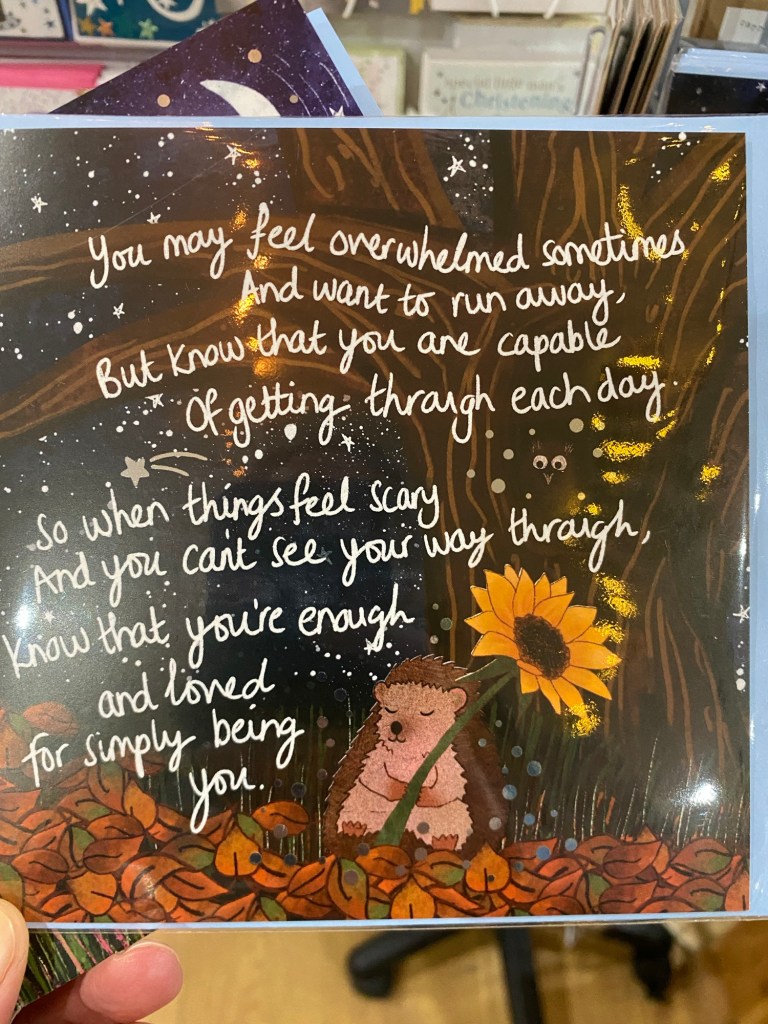 special little man's
Christening
You may feel overwhelmed sometimes
And want to run away,
But know that you are capable
Of getting through each day.
So when things feel scary
And you can't see your way through,
Know that you're enough
and loved
for simply being
you.